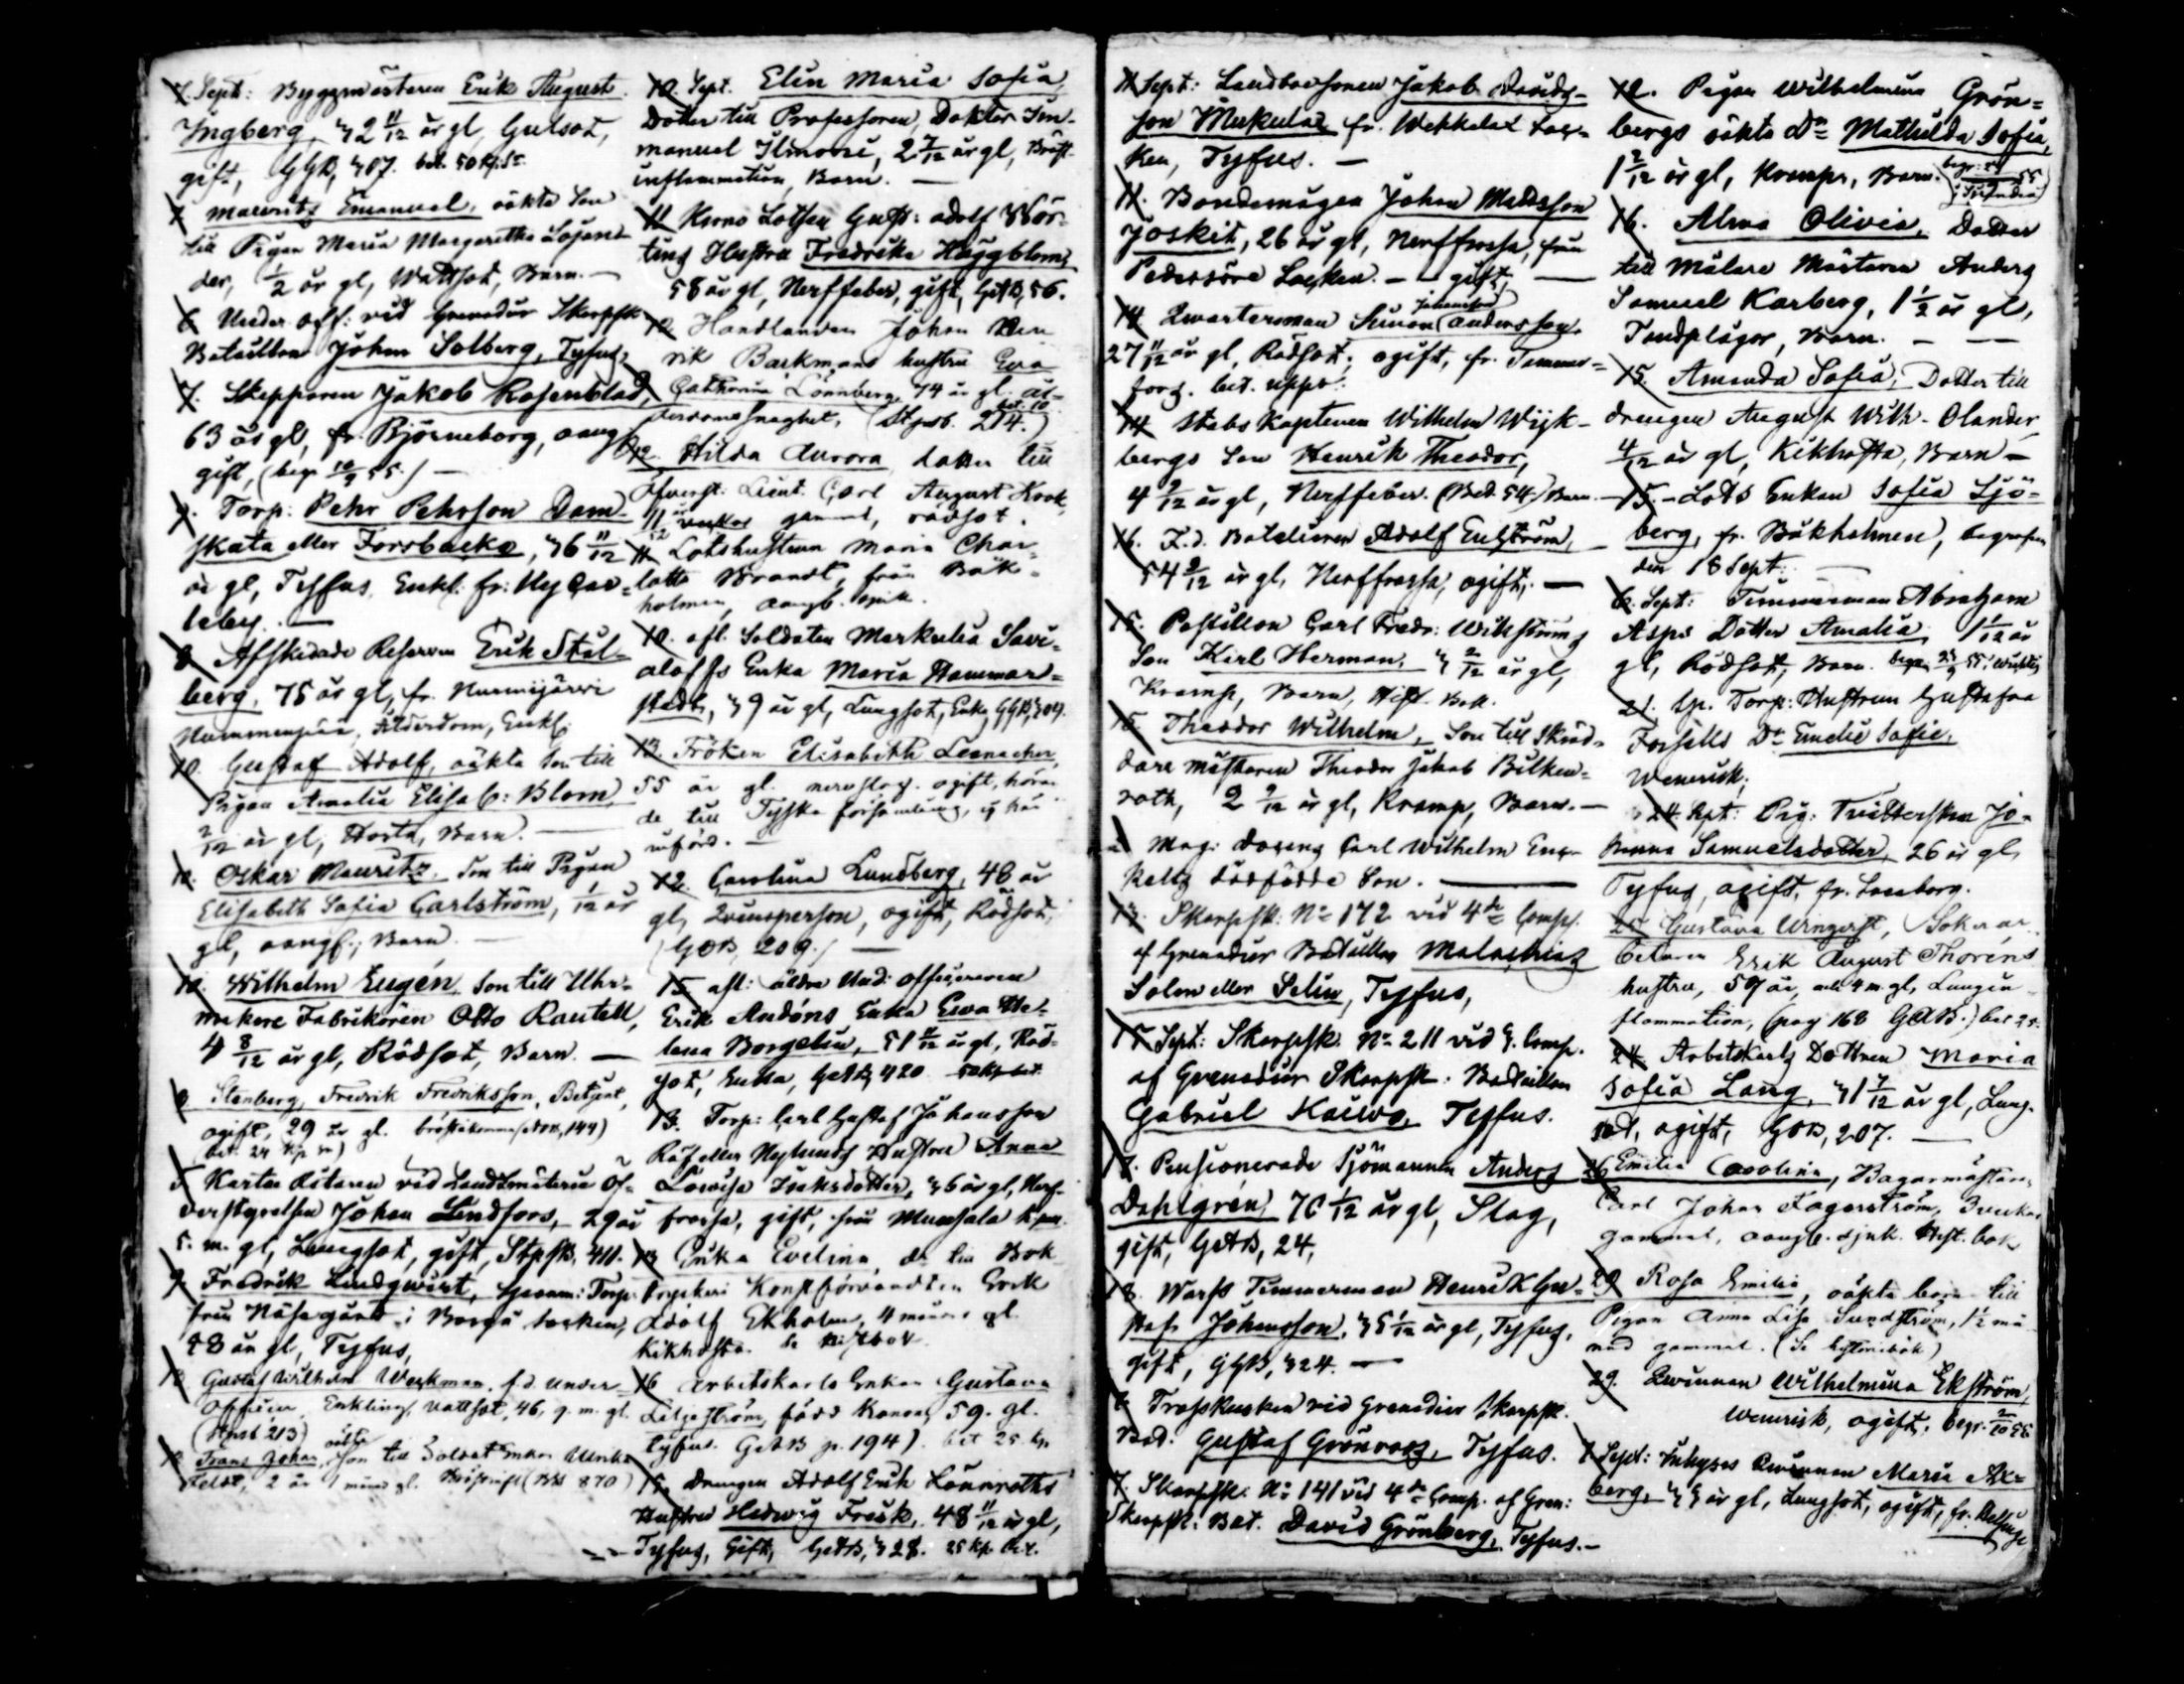 7. Sept: Byggmästaren Erik August
Yngberg, 42 11/12 år gl, Gulsot,
gift, GGB, 407. bet. 50 kp. Sr
7. Mauritz Emanuel, oäkta Son
till Pigan Maria Margaretha Lojan-
der, 1/2 år gl, Wattsot, Barn. —
6. Under off: vid Grenadier Skarpsk
Bataillon Johan Solberg, Tyfus,
7. Skepparen Jakob Rosenblad,
63 år gl, fr. Björneborg, aang
gift, (begr 10/9 55.) —
9. Torp: Pehr Pehrson Dam-
skata eller Forsbacka, 46 11/12
år gl, Tyffus, Enkl. fr: Ny Car-
leby. —
8. Afskedade Reserven Erik Stål-
berg, 75 år gl, fr. Nurmijärvi
Ålderdom, Enkl.
10. Gustaf Adolf, oäkta Son till
Pigan Amalia Elisab: Blom,
2/12 år gl, Hosta, Barn. —
10. Oskar Mauritz, Son till Pigan
Elisabeth Sofia Carlström, 1/12 år
gl, aangf.; Barn. —
10. Wilhelm Eugén Son till Uhr-
makare Fabrikören Otto Rautell,
4 8/12 år gl, Rödsot, Barn. —
8. Stenberg, Fredrik Fredriksson, Betjent,
ogift, 29 år gl. 144)
(bet. 25 kp Sr)
5. Kartaritaren vid Landtmäteri Öf-
verstyrelsen Johan Lindfors, 29 år
5. m. gl, Lungsot, gift, 411.
9. Fredrik Lindqwist, Torp:
från Näse gård i Borgå socken,
48 år gl, Tyffus,
10. Gustaf Wilhelm Werkman, f.d. Under-
officer, Enkling, vattsot, 46, 9. m. gl.
213)
10. Frans Johan, oäkta Son till Soldat Enkan Ulrika
Feldt, 2 år 1 månd gl. 870)
10. Sept. Elin Maria Sofia,
Dotter till Professoren, Doktor Im-
manuel Ilmoni, 2 7/12 år gl, Bröst-
inflammation, Barn. —
11 Krono Lotsen Gust: Adolf Wör-
tings Hustru Fredrika Häggblom,
58 år gl, Nerffeber, gift, GAB, 56.
12 Handlanden Johan Hen-
rik Barkmans hustru Eva
Catharina Lönnberg, 74 år gl. ål-
derdomssvaghet, 214.)
12. Hilda Aurora, dotter till
Öfverst. Lieut. Carl August Kook,
11/12 gammal, rödsot.
11. Lotshustrun Maria Char-
lotta Brandt, från Båk-
holmen, aangb. sjuk.
10. afl. Soldaten Markulia Savi-
aloffs Enka Maria Hammar-
stedt, 49 år gl, Lungsot, Enka, GGB, 304.
13. Fröken Elisabeth Lesnacher,
55 år gl. nervslag. ogift, höran-
de till Tyska församling, ej här
införd. —
12. Carolina Lundberg, 48 år
gl, Qvinsperson, ogift, Rödsot,
(GOB, 209.) —
15. afl: äldre Und: officeraren
Erik Andéns Enka Ewa He-
lena Borgelin, 51 8/12 år gl, Röd-
sot, Enka, GAB, 420 50 kp bet.
13. Torp: Carl Gustaf Johansson
Råf eller Nylunds Hustru Anna
Lovisa Isaksdotter, 46 år gl, Nerf-
frossa, gift, från Munsala
13 Erika Evelina, dr till Bok
tryckeri Konstförvandten Erik
Adolf Ekholm, 4 mån: gl.
Kikhosta.
16 Arbetskarls Enkan Gustava
Liljeström, född Kanon, 59. gl.
tyfus. GAB p. 194). bet 25 kp
15. Drengen Adolf Erik Lönnroths
Hustru Hedwig Frisk, 48 11/12 år gl,
Tyfus, Gift, GAB, 428. 25 kp bet.
11 Sept: Landbosonen Jakob Davids-
son Mukulax fr. Wekkelax Soc-
ken, Tyfus. —
11. Bondemågen Johan Mattsson
Joskit, 26 år gl, Nerffrossa, från
Pedersöre Socken. — gift, —
14 Qwarterman Simon (Johansson) Andersson,
27 11/12 år gl, Rödsot, ogift, fr. Tammer-
fors. bet. uppb.
14 Stabs Kaptenen Wilhelm Wijk-
bergs Son Henrik Theodor,
4 9/12 år gl, Nerffeber. (Bet. 54.) Barn. —
16. F.d. Betelieren Adolf Engström,
54 2/12 år gl, Nerffrossa, ogift, —
15. Postillon Carl Fredr: Willstrüms
Son Karl Herman, 4 2/12 år gl,
Kramp, Barn,
15. Theodor Wilhelm, Son till Skräd-
dare mästaren Theodor Jakob Bilken-
roth, 2 9/12 år gl, Kramp, Barn. —
Mag: Docens Carl Wilhelm
dödfödde Son. —
13. Skarpsk: No 172 vid 4de Comp.
af Grenadier Bataillon Malachias
Solon eller Selin, Tyffus,
15 Sept: Skarpsk. No 211 vid 4. Comp.
af Grenadier Skarpsk: Bataillon
Gabriel Kaiwo, Tyffus.
17. Pensionerade Sjömannen Anders
Dahlgrén, 70 1/12 år gl, Slag,
gift, GAB, 24,
18. Warfs Timmerman Henrik Gu-
staf Johansson, 45 1/12 år gl, Tyfus,
gift, GGB, 424. —
6. Trosskusken vid Grenadier Skarpsk.
Bat. Gustaf Grönroos, Tyffus.
7. Skarpsk: No 141 vid 4de Comp. af Gren:
Skarpsk: Bat. David Grönberg, Tyffus. —
12. Pigan Wilhelmina Grön-
bergs oäkta Dr Mathilda Sofia,
1 2/12 år gl, Kramp, Barn.
16. Alma Olivia, Dotter
till Målare Mästaren Anders
Samuel Karberg, 1 1/2 år gl,
Tandplågor, Barn. — —
15. Amanda Sofia, Dotter till
drengen August Wilh. Olander,
4/12 år gl, Kikhosta, Barn —
15. Lots Enkan Sofia Sjö-
berg, fr. Båkholmen, begrafven
den 18 Sept. —
6. Sept: Timmerman Abraham
Asps Dotter Amalia, 1 1/12 år
gl, Rödsot, Barn.
21. Sp. Torp: Hustrun Gustafva
Forssells Dr Emelie Sofie,
Wenerisk;
24 Sept: Pig: Jo-
hanna Samuelsdotter, 26 år gl,
Tyfus, ogift, fr.
25 Gustava Wingqvist, Soker ar-
betaren Erik August Thoréns
hustru, 59 år, och 4 m. gl, Lungin-
flammation, (pag 168 GAB.) bet 25.
24 Arbetskarls Dottren Maria
Sofia Lang, 41 7/12 år gl, Lung-
sot, ogift, GOB, 207. —
26 Emilia Carolina, Bagarmästaren
Carl Johan Fagerström, 3 veckor
gammal, aangb. sjuk. Hist. bok
29 Rosa Emilia, oäkta barn till
Pigan Anna Lisa Sundström, 1 1/2 må-
nad gammal. (Se historiebok)
29. Qwinnan Wilhelmina Ekström,
Wenerisk, ogift, begr. 2/10 55.
1 Sept: Inhyses Qwinnan Maria Ek-
berg, 44 år gl, Lungsot, ogift, fr. Helsinge